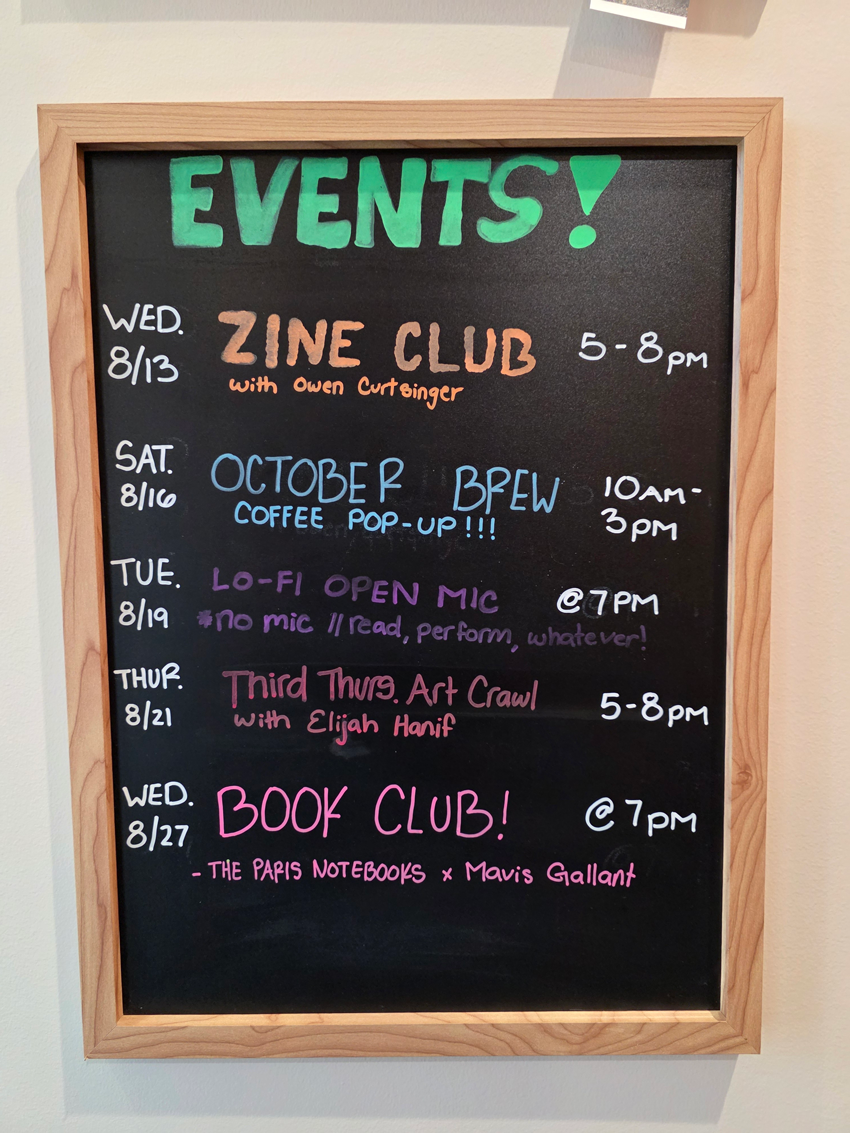 EVENTS!
WED. 8/13 ZINE CLUB 5-8PM
with Owen Curtsinger
SAT. 8/16 OCTOBER BREW 10AM-3PM
COFFEE POP-UP!!!
TUE. 8/19 LO-FI OPEN MIC @7PM
*no mic // read, perform, whatever!
THUR. 8/21 Third Thurs. Art Crawl 5-8PM
with Elijah Hanif
WED. 8/27 BOOK CLUB! @7PM
- THE PARIS NOTEBOOKS x Mavis Gallant